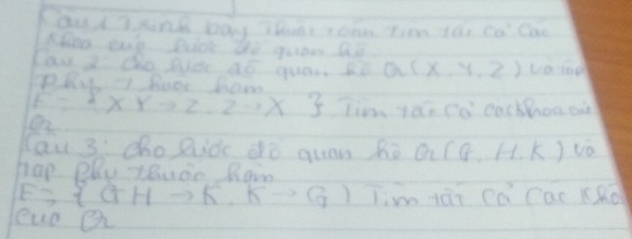 Câu 1 Trình bày Thuật toán tìm tất cả các
khoá của lược đồ quan hệ
Câu 2: Cho lược đồ quan hệ Q(X, Y, Z) và tập
phụ thuộc hàm
F = { XY → Z, Z → X } Tìm tất cả các khoá của
Q
Câu 3: Cho lược đồ quan hệ Q(G, H, K) và
tập phụ thuộc hàm
F = { GH → K, K → G ) Tìm tất cả các khoá
của Q